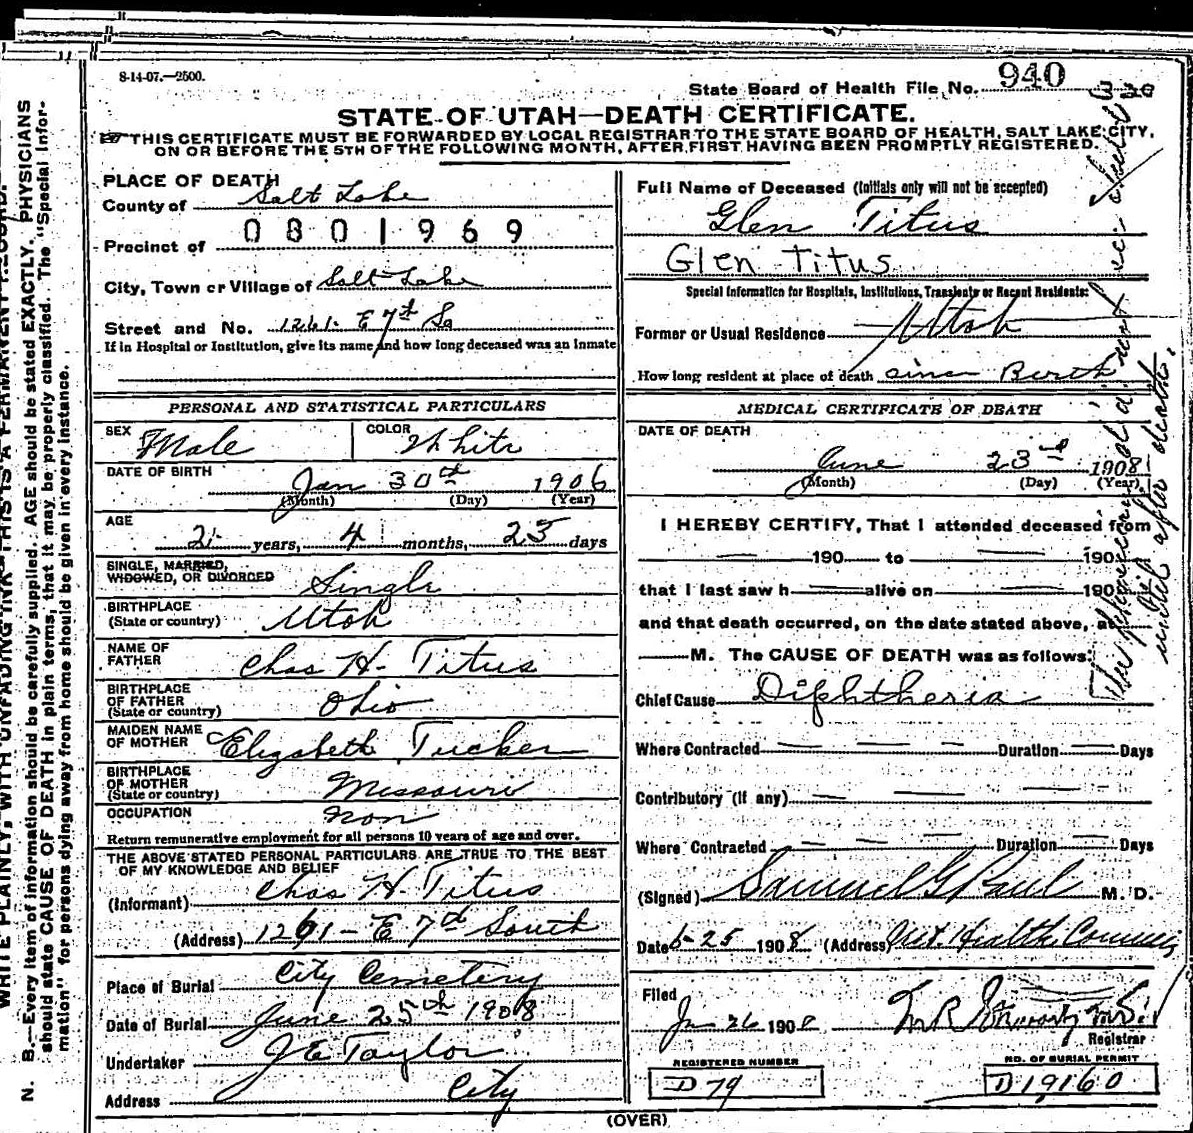 8-14-07.—2500.
State Board of Health File No. 940
STATE OF UTAH—DEATH CERTIFICATE.
THIS CERTIFICATE MUST BE FORWARDED BY LOCAL REGISTRAR TO THE STATE BOARD OF HEALTH, SALT LAKE CITY,
ON OR BEFORE THE 5TH OF THE FOLLOWING MONTH, AFTER FIRST HAVING BEEN PROMPTLY REGISTERED.
PLACE OF DEATH
County of Salt Lake
0801969
Precinct of
City, Town or Village of Salt Lake
Street and No. 1261 E 7th So
If in Hospital or Institution, give its name and how long deceased was an inmate
Full Name of Deceased (Initials only will not be accepted)
Glen Titus
Glen Titus
Special Information for Hospitals, Institutions, Transients or Recent Residents:
Former or Usual Residence Utah
How long resident at place of death since Birth
PERSONAL AND STATISTICAL PARTICULARS
SEX Male COLOR White
DATE OF BIRTH
Jan 30th 1906
(Month) (Day) (Year)
AGE
2 years, 4 months, 25 days
SINGLE, MARRIED,
WIDOWED, OR DIVORCED Single
BIRTHPLACE
(State or country) Utah
NAME OF
FATHER Chas H. Titus
BIRTHPLACE
OF FATHER
(State or country) Ohio
MAIDEN NAME
OF MOTHER Elizabeth Tucker
BIRTHPLACE
OF MOTHER
(State or country) Missouri
OCCUPATION Non
Return remunerative employment for all persons 10 years of age and over.
THE ABOVE STATED PERSONAL PARTICULARS ARE TRUE TO THE BEST
OF MY KNOWLEDGE AND BELIEF
(Informant) Chas H. Titus
(Address) 1261 - E 7th South
Place of Burial City Cemetery
Date of Burial June 25th 1908
Undertaker J E Taylor
Address City
MEDICAL CERTIFICATE OF DEATH
DATE OF DEATH
June 23rd 1908
(Month) (Day) (Year)
I HEREBY CERTIFY, That I attended deceased from
190 to 190
that I last saw h alive on 190
and that death occurred, on the date stated above, at
M. The CAUSE OF DEATH was as follows:
Chief Cause Diphtheria
Where Contracted Duration Days
Contributory (if any)
Where Contracted Duration Days
(Signed) Samuel G Paul M. D.
Date 6-25 1908 (Address) Health
Filed
26 1908
Registrar
REGISTERED NUMBER
D 79
NO. OF BURIAL PERMIT
D19160
(OVER)
The physician did not see child
until after death.
WRITE PLAINLY, WITH UNFADING INK—THIS IS A PERMANENT RECORD.
N. B.—Every item of information should be carefully supplied. AGE should be stated EXACTLY. PHYSICIANS
should state CAUSE OF DEATH in plain terms, that it may be properly classified. The "Special Infor-
mation" for persons dying away from home should be given in every instance.